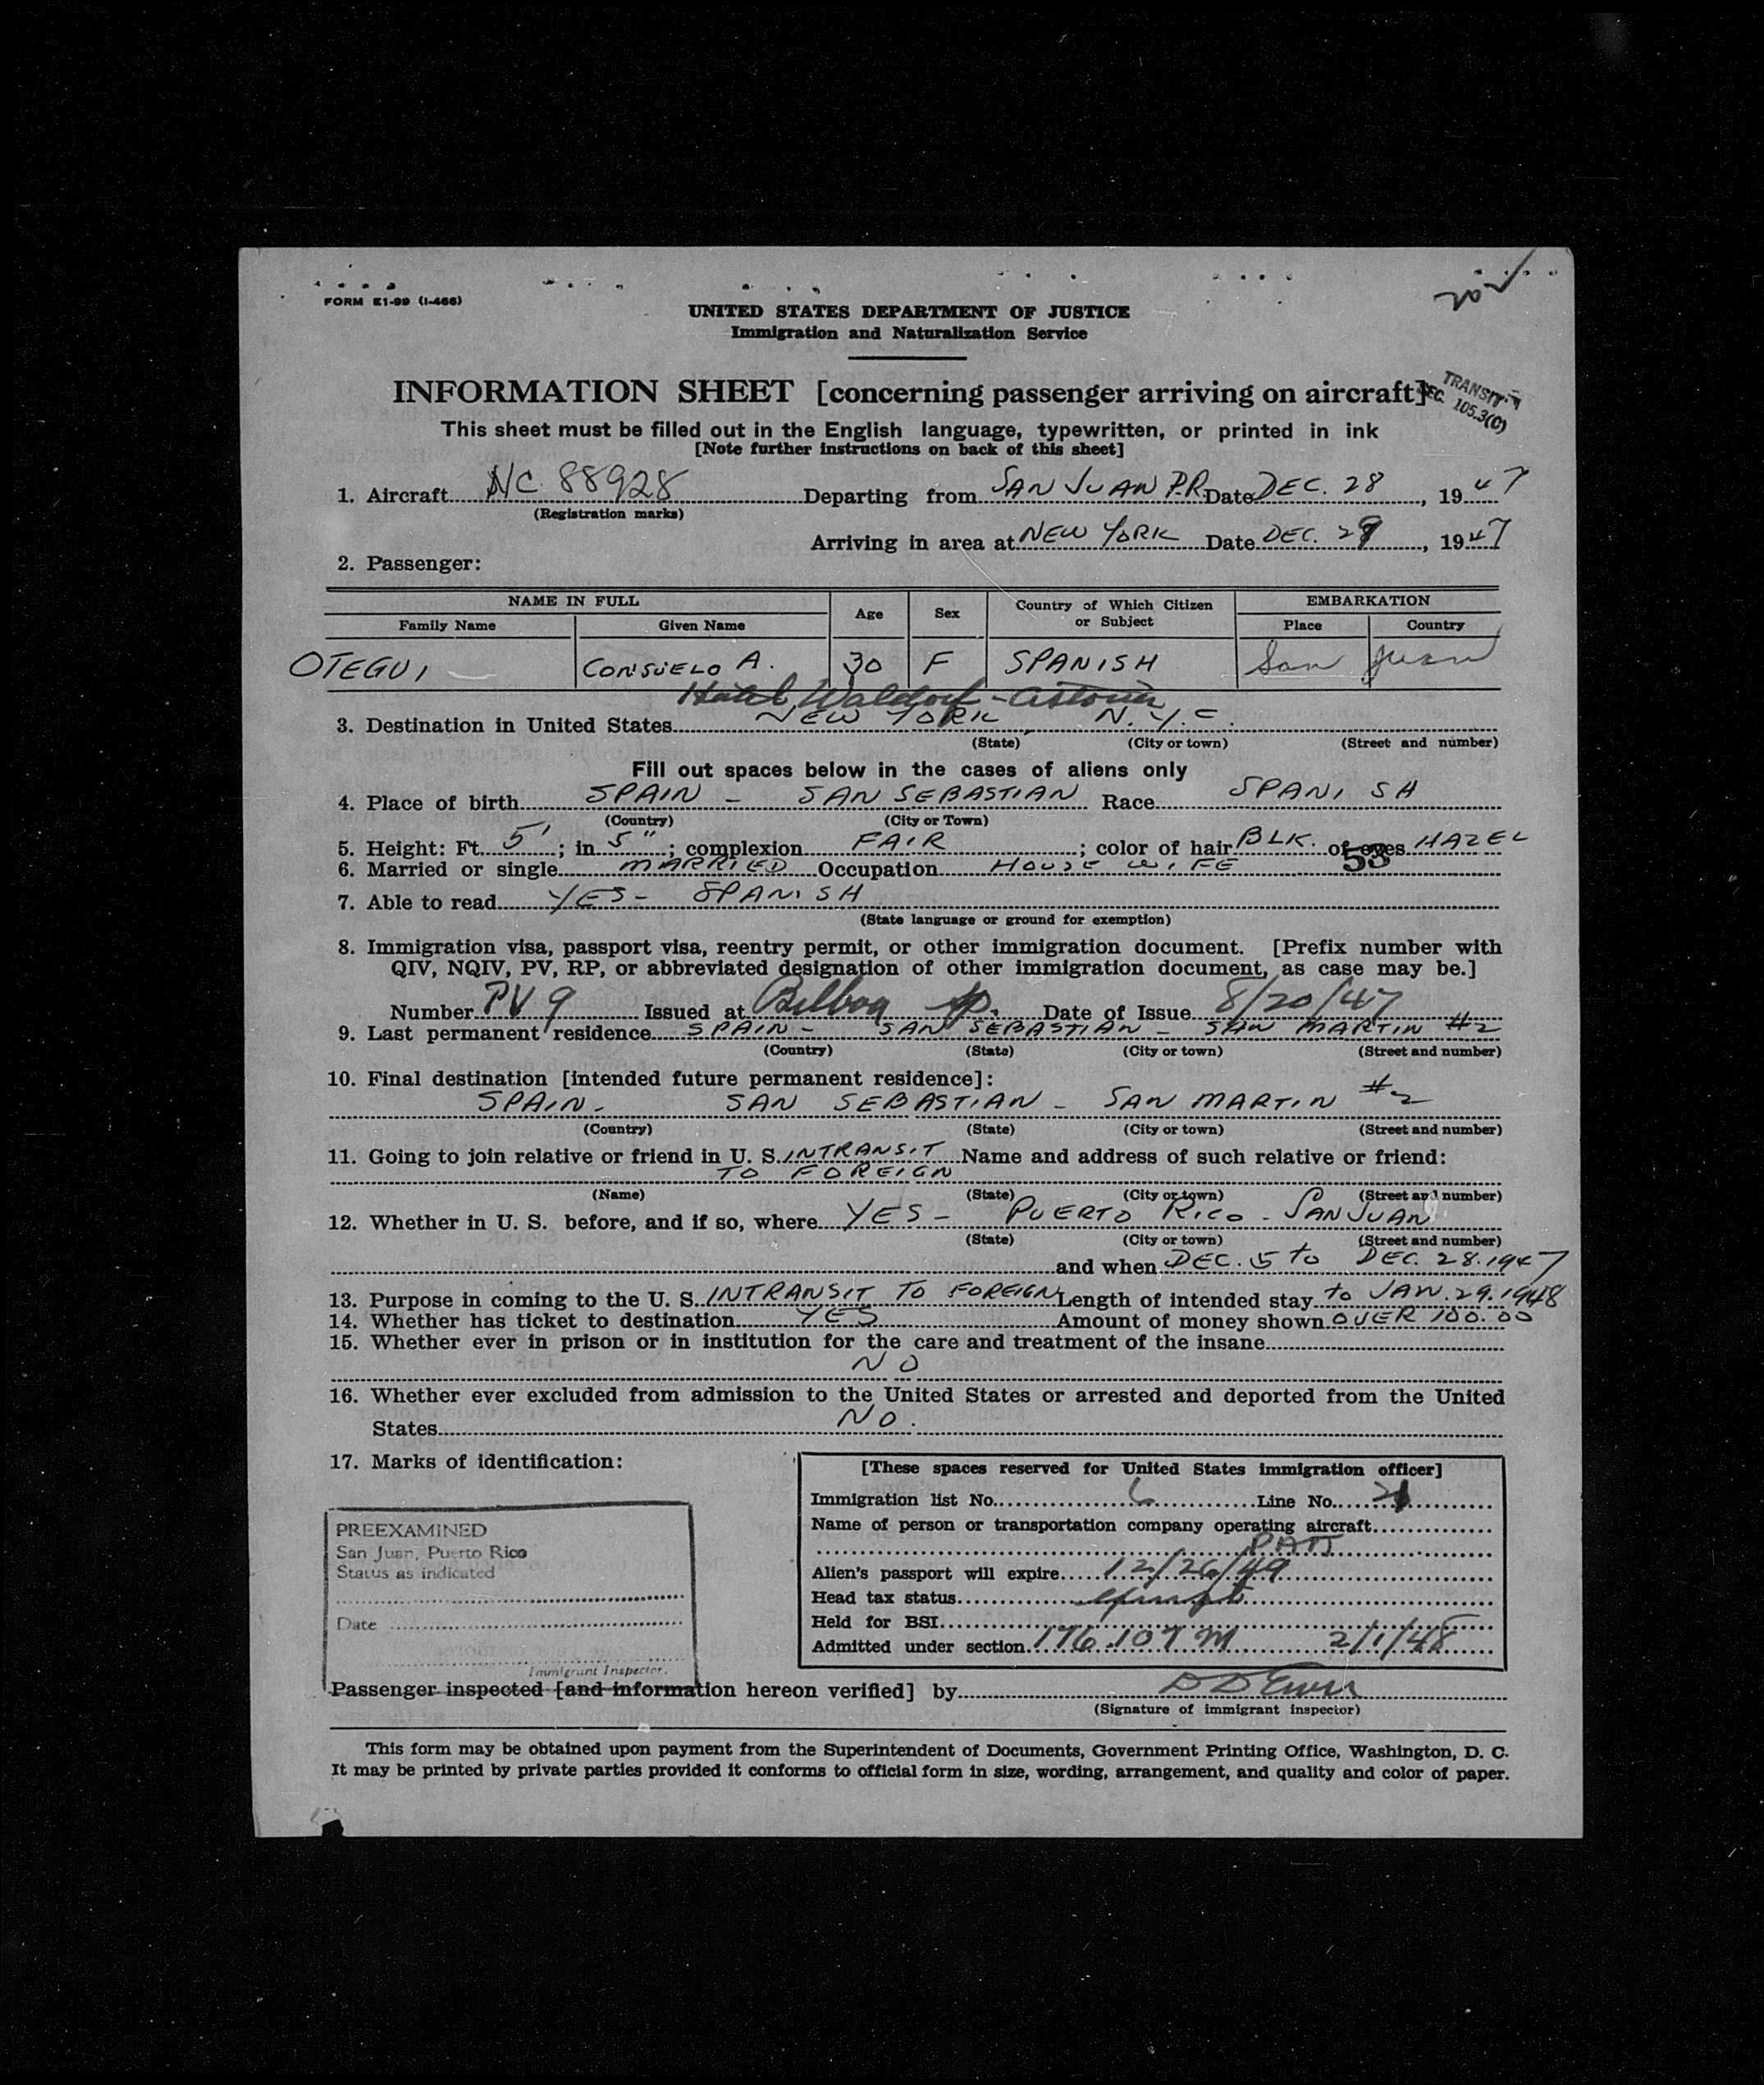 FORM E1-99 (I-466)
UNITED STATES DEPARTMENT OF JUSTICE
Immigration and Naturalization Service
INFORMATION SHEET [concerning passenger arriving on aircraft]
TRANSIT
SEC. 105.3(C)
This sheet must be filled out in the English language, typewritten, or printed in ink
[Note further instructions on back of this sheet]
1. Aircraft NC 88928 Departing from SAN JUAN P.R. Date DEC. 28, 1947
(Registration marks)
Arriving in area at NEW YORK Date DEC. 29, 1947
2. Passenger:
NAME IN FULL Age Sex Country of Which Citizen or Subject EMBARKATION
Family Name Given Name Place Country
OTEGUI CONSUELO A. 30 F SPANISH San Juan
Hotel Waldorf-Astoria
3. Destination in United States NEW YORK N.Y.C.
(State) (City or town) (Street and number)
Fill out spaces below in the cases of aliens only
4. Place of birth SPAIN - SAN SEBASTIAN Race SPANISH
(Country) (City or Town)
5. Height: Ft. 5'; in 5"; complexion FAIR; color of hair BLK. of eyes HAZEL
53
6. Married or single MARRIED Occupation HOUSE WIFE
7. Able to read YES - SPANISH
(State language or ground for exemption)
8. Immigration visa, passport visa, reentry permit, or other immigration document. [Prefix number with
QIV, NQIV, PV, RP, or abbreviated designation of other immigration document, as case may be.]
Number PV 9 Issued at Bilboa Sp. Date of Issue 8/20/47
9. Last permanent residence SPAIN - SAN SEBASTIAN - SAN MARTIN #2
(Country) (State) (City or town) (Street and number)
10. Final destination [intended future permanent residence]:
SPAIN - SAN SEBASTIAN - SAN MARTIN #2
(Country) (State) (City or town) (Street and number)
11. Going to join relative or friend in U. S. INTRANSIT Name and address of such relative or friend:
TO FOREIGN
(Name) (State) (City or town) (Street and number)
12. Whether in U. S. before, and if so, where YES - PUERTO RICO - SAN JUAN
(State) (City or town) (Street and number)
and when DEC. 5 to DEC. 28. 1947
13. Purpose in coming to the U. S. INTRANSIT TO FOREIGN Length of intended stay to JAN. 29. 1948
14. Whether has ticket to destination YES Amount of money shown OVER 100.00
15. Whether ever in prison or in institution for the care and treatment of the insane
NO
16. Whether ever excluded from admission to the United States or arrested and deported from the United
States NO.
17. Marks of identification:
PREEXAMINED
San Juan, Puerto Rico
Status as indicated
Date
Immigrant Inspector.
[These spaces reserved for United States immigration officer]
Immigration list No. 6 Line No.
Name of person or transportation company operating aircraft
Alien's passport will expire 12/26/49
Head tax status exempt
Held for BSI
Admitted under section 176.107 M 2/1/48
Passenger inspected [and information hereon verified] by
(Signature of immigrant inspector)
This form may be obtained upon payment from the Superintendent of Documents, Government Printing Office, Washington, D. C.
It may be printed by private parties provided it conforms to official form in size, wording, arrangement, and quality and color of paper.